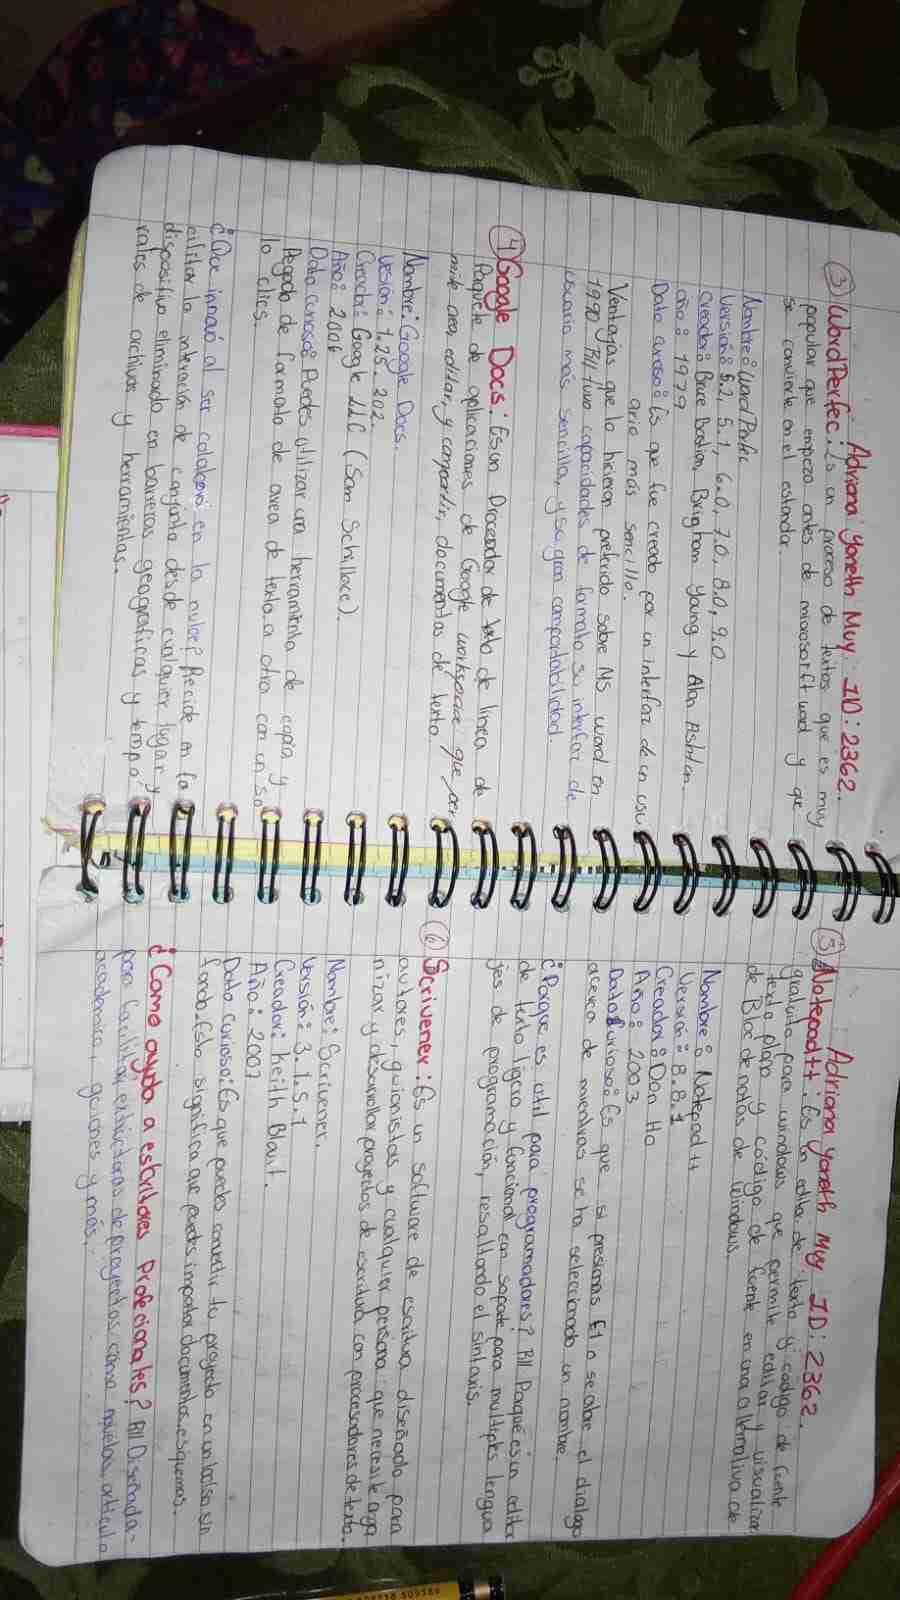 Adriana Yoneth Muy ID: 2362.
③ WordPerfec: Es un proceso de textos que es muy
popular que empezo antes de microsorft word y que
se convierte en el estandar.
Nombre: WordPerfec
Versión: 5.2, 5.1, 6.0, 7.0, 8.0, 9.0
Creador: Bruce Bastian, Brigham Young y Alan Ashton.
año: 1979
Dato curioso: Es que fue creado por un interfaz de un usu
ario más sencillo.
Ventajas que lo hicieron preferido sobre MS word en
1980 R// tuvo capacidades de formato su interfaz de
usuario más sencilla, y su gran compartabilidad.
④ Google Docs: Es un Procesador de texto de linea de
Paquete de aplicaciones de Google workspace que per
mite crea, editar, y compartir, documentos de texto.
Nombre: Google Docs.
Vesión: 1.25.202.
Creador: Google LLC (Sam Schillace).
Año: 2006
Dato curioso: Puedes utilizar una herramienta de copia y
Pegado de formato de avea de texto a otra con un so
lo clics.
¿Que innovó al ser colabora en la nube? Recide en fa
cilitar la interación de conjunta desde cualquier lugar y
dispositivo eliminado en barreras geograficas y tempo
rales de archivos y herramientas.
Adriana Yoneth Muy ID: 2362.
⑤ Notepad++: Es un edita de texto y codigo de fuente
gratuito para windows que permite editar y visualizar
texto plano y código de fuente en una alternativa de
de Bloc de notas de Windows.
Nombre: Notepad++
Versión: 8.8.1
Creador: Don Ho
Año: 2003
Dato Curioso: Es que si presionas F1 o se abre el dialogo
acerca de mientras se ha seleccionado un nombre.
¿Porque es util para programadores? R// Porqué es un editor
de texto ligero y funcional con soporte para multiples lengua
jes de programación, resaltando el sintaxis.
⑥ Scrivener: Es un software de escritura diseñado para
autores, guionistas y cualquier persona que necesite orga
nizar y desarrollar proyectos de escritura con procesadores de texto.
Nombre: Scrivener.
Versión: 3.1.5.1
Creador: Keith Blount.
Año: 2007
Dato curioso: Es que puedes convertir tu proyecto en un bolso sin
fondo. Esto significa que puedes importar documentos, esquemas.
¿Como ayuda a escritores Profecionales? R// Diseñada-
para facilitar estructuras de proyectos como novelas, articulo
academico, guiones y más.
509386